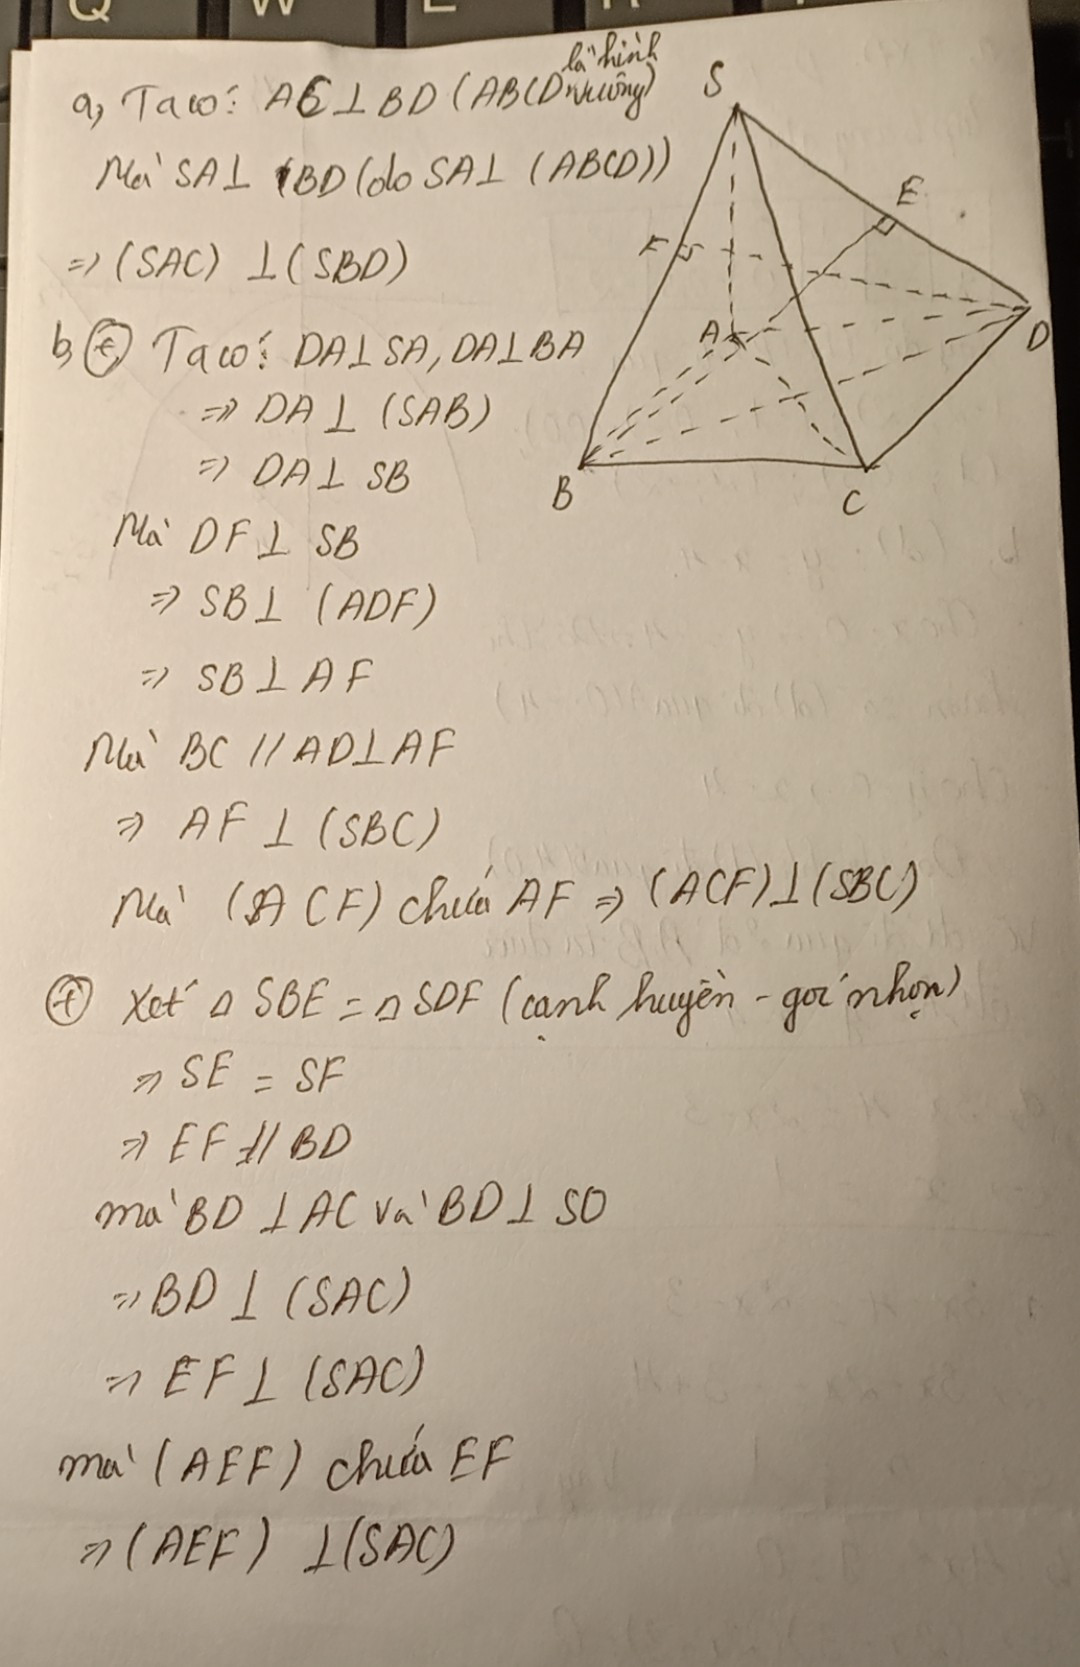 Q W E R
a, Ta có: AC ⊥ BD (ABCD là hình vuông)
Mà SA ⊥ BD (do SA ⊥ (ABCD))
=> (SAC) ⊥ (SBD)
S
E
F
A
D
B
C
b, (+) Ta có: DA ⊥ SA, DA ⊥ BA
=> DA ⊥ (SAB)
=> DA ⊥ SB
Mà DF ⊥ SB
=> SB ⊥ (ADF)
=> SB ⊥ AF
Mà BC // AD ⊥ AF
=> AF ⊥ (SBC)
Mà (ACF) chứa AF => (ACF) ⊥ (SBC)
(+) Xét △ SBE = △ SDF (cạnh huyền - góc nhọn)
=> SE = SF
=> EF // BD
mà BD ⊥ AC và BD ⊥ SO
=> BD ⊥ (SAC)
=> EF ⊥ (SAC)
mà (AEF) chứa EF
=> (AEF) ⊥ (SAC)